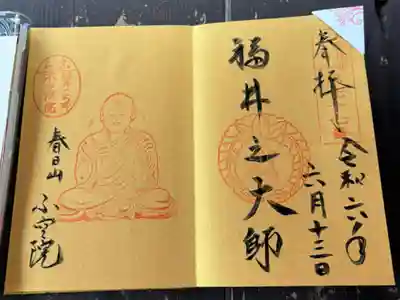 奉拝
令和六年
六月十三日
福井之大師
春日山
不空院